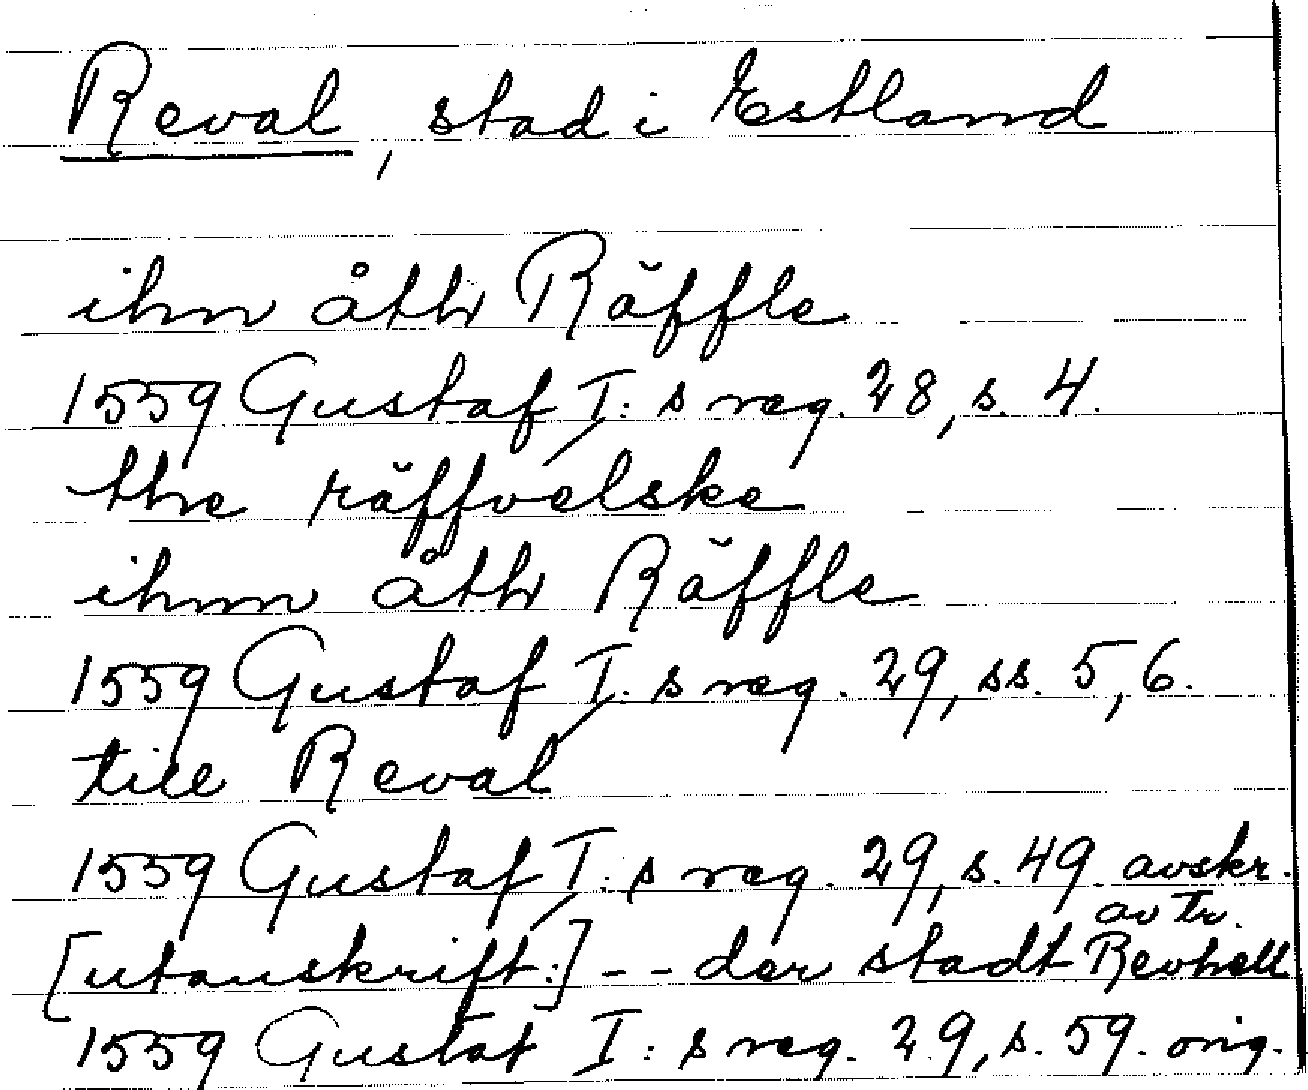 Reval, stad i Estland
ihn åth Räffle
1559 Gustaf I:s reg. 28, s. 4.
the räffvelske
ihnn åth Räffle
1559 Gustaf I:s reg. 29, ss. 5, 6.
till Reval
1559 Gustaf I:s reg. 29, s. 49. avskr.
av tr.
[utanskrift:] -- der stadt Revhell
1559 Gustaf I:s reg. 29, s. 59. orig.